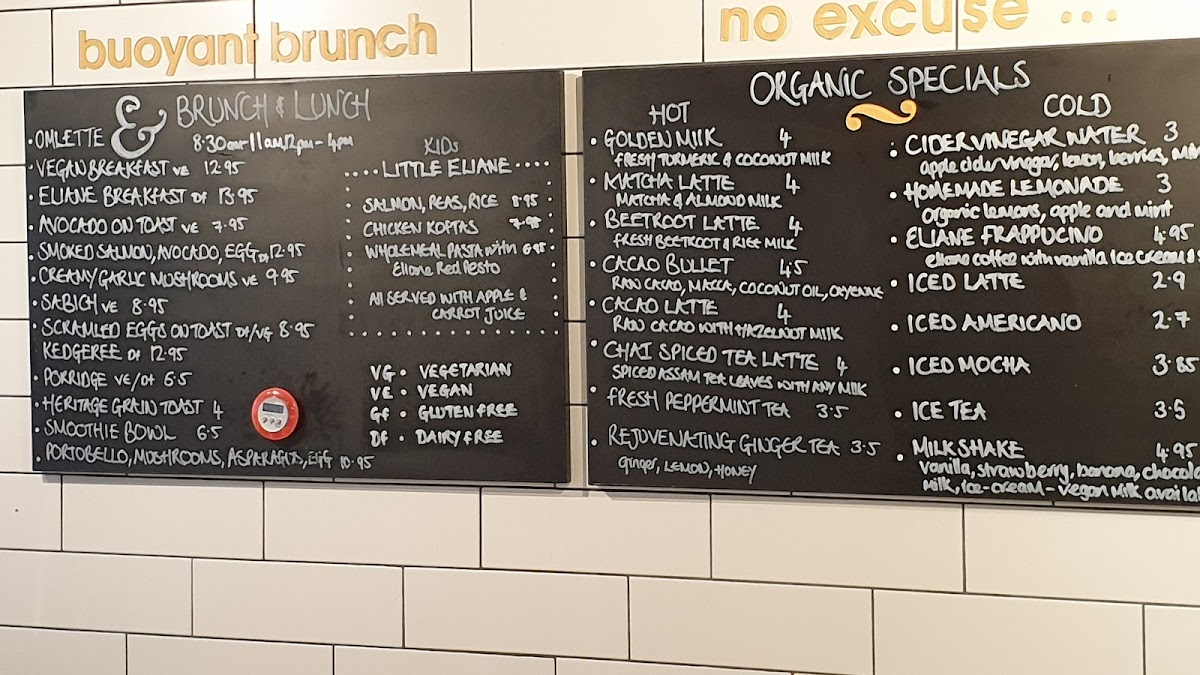 buoyant brunch
no excuse ...
& BRUNCH & LUNCH
8.30am-11am, 12pm - 4pm
• OMLETTE
• VEGAN BREAKFAST VE 12.95
• ELIANE BREAKFAST DF 13.95
• AVOCADO ON TOAST VE 7.95
• SMOKED SALMON, AVOCADO, EGG DF 12.95
• CREAMY GARLIC MUSHROOMS VE 9.95
• SABICH VE 8.95
• SCRAMLED EGGS ON TOAST DF/VG 8.95
KEDGEREE DF 12.95
• PORRIDGE VE/DF 6.5
• HERITAGE GRAIN TOAST 4
• SMOOTHIE BOWL 6.5
• PORTOBELLO, MUSHROOMS, ASPARAGUS, EGG 10.95
KIDs
.... LITTLE ELIANE ....
SALMON, PEAS, RICE 8.95
CHICKEN KOFTAS 7.95
WHOLEMEAL PASTA with 6.95
Eliane Red Pesto
All SERVED WITH APPLE &
CARROT JUICE
VG • VEGETARIAN
VE • VEGAN
GF • GLUTEN FREE
DF • DAIRY FREE
ORGANIC SPECIALS
HOT
• GOLDEN MILK 4
FRESH TURMERIC & COCONUT MILK
• MATCHA LATTE 4
MATCHA & ALMOND MILK
• BEETROOT LATTE 4
FRESH BEETROOT & RICE MILK
• CACAO BULLET 4.5
RAW CACAO, MACCA, COCONUT OIL, CAYENNE
• CACAO LATTE 4
RAW CACAO WITH HAZELNUT MILK
• CHAI SPICED TEA LATTE 4
SPICED ASSAM TEA LEAVES WITH ANY MILK
• FRESH PEPPERMINT TEA 3.5
• REJUVENATING GINGER TEA 3.5
Ginger, LEMON, HONEY
COLD
• CIDER VINEGAR WATER 3
apple cider vinegar, lemon, berries,
• HOMEMADE LEMONADE 3
Organic lemons, apple and mint
• ELIANE FRAPPUCINO 4.95
eliane coffee with vanilla Ice cream &
• ICED LATTE 2.9
• ICED AMERICANO 2.7
• ICED MOCHA 3.85
• ICE TEA 3.5
• MILKSHAKE 4.95
Vanilla, strawberry, banana, chocola
Milk, Ice-cream - vegan Milk availa